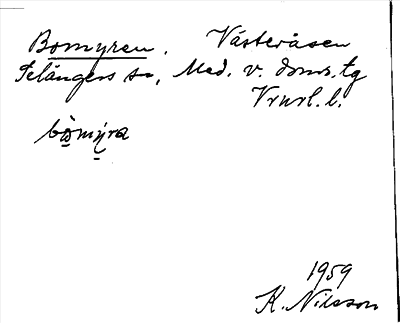 Bomyren. Västeråsen
Selångers sn, Med. v. doms. tg
Vrurl. l.
bòmýra
1959
K. Nilsson